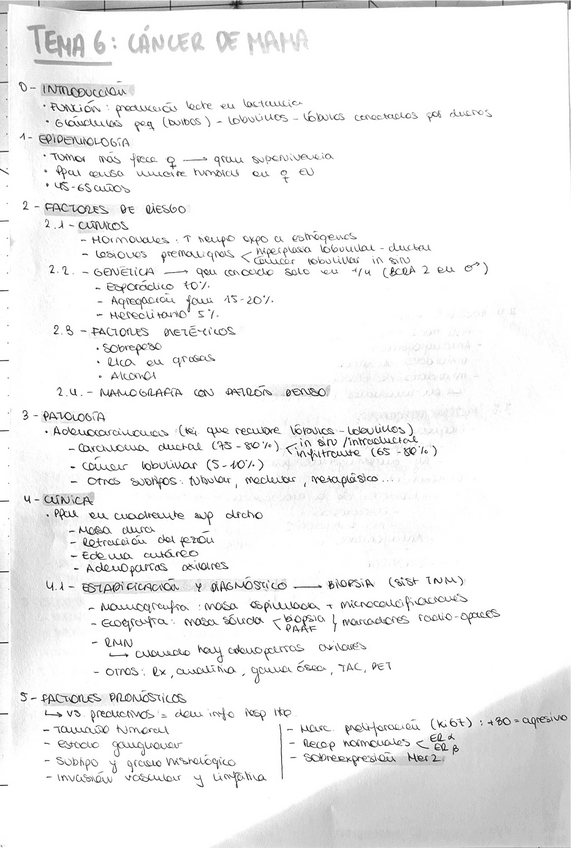 TEMA 6: CÁNCER DE MAMA
0 - INTRODUCCIÓN
• FUNCIÓN: producción leche en lactancia
• Glándulas peq (bulbos) - lobulillos - lóbulos conectados por ductos
1 - EPIDEMIOLOGÍA
• Tumor más frec ♀ → gran supervivencia
• Ppal causa muerte tumoral en ♀ EU
• 45-65 años
2 - FACTORES DE RIESGO
2.1 - CLÍNICOS
- Hormonales: ↑ tiempo expo a estrógenos
- Lesiones premalignas < hiperplasia lobulillar - ductal
cáncer lobulillar in situ
2.2. - GENÉTICA → gen conocido solo en 1/4 (BCRA 2 en ♂)
- Esporádico 70%
- Agregación fam 15-20%
- Hereditario 5%
2.3 - FACTORES DIETÉTICOS
• Sobrepeso
• Rica en grasas
• Alcohol
2.4. - MAMOGRAFÍA CON PATRÓN DENSO
3 - PATOLOGÍA
• Adenocarcinomas (tej que recubre lóbulos - lobulillos)
- Carcinoma ductal (75-80%) < in situ / intraductal
infiltrante (65-80%)
- Cáncer lobulillar (5-10%)
- Otros subtipos: tubular, medular, metaplásico...
4 - CLÍNICA
• Ppal en cuadrante sup drcho
- Masa dura
- Retracción del pezón
- Edema cutáneo
- Adenopatías axilares
4.1 - ESTADIFICACIÓN Y DIAGNÓSTICO → BIOPSIA (sist TNM)
- Mamografía: masa espiculada + microcalcificaciones
- Ecografía: masa sólida < biopsia
PAAF } marcadores radio-opacos
- RMN
→ cuando hay adenopatías axilares
- Otros: Rx, analítica, gamma ósea, TAC, PET
5 - FACTORES PRONÓSTICOS
↳ vs. predictivos = dan info resp tto
- Tamaño tumoral
- Estado ganglionar
- Subtipo y grado histológico
- Invasión vascular y linfática
- Marc. proliferación (Ki67): +80 = agresivo
- Recep hormonales < ER α
ER β
- Sobreexpresión Her2